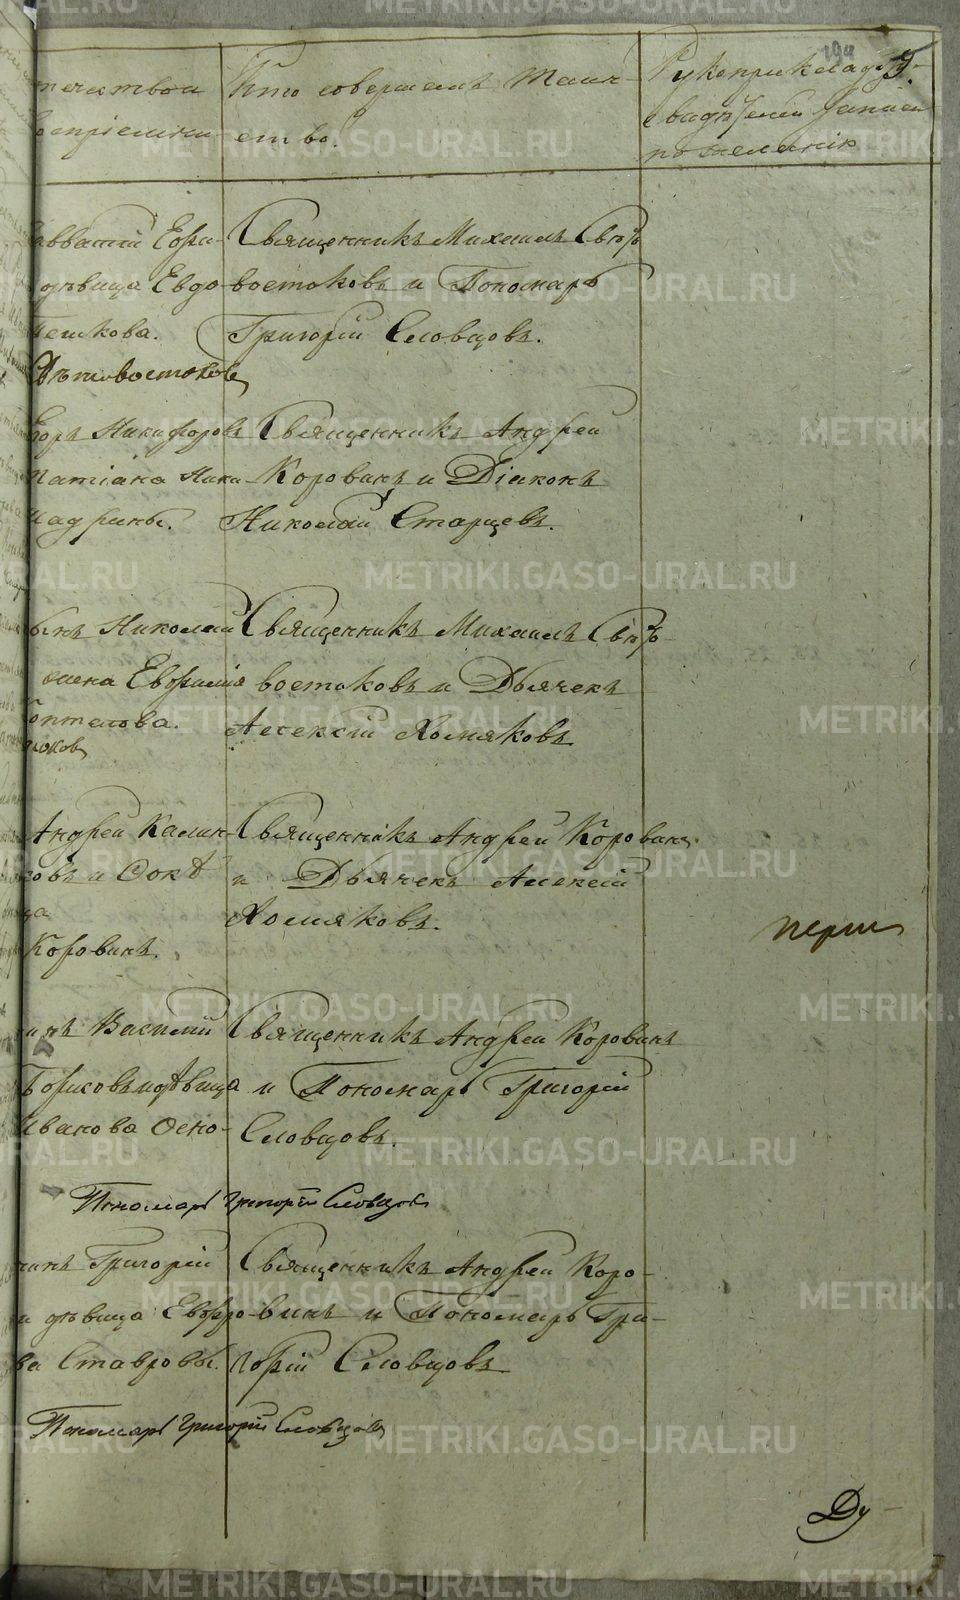 194
5.
отчество
воспріемни-
Кто совершалъ таин-
ство.
Рукоприкладство
свидѣтелей записи
по желанію
Савватій Ефи-
дѣвица Евдо-
Пешкова.
Свѣтовостоковъ
Священникъ Михаилъ Свѣто-
востоковъ и Пономарь
Григорій Словцовъ.
Егоръ Никифоровъ
Татіана Ники-
Шадрины.
Священникъ Андрей
Коровинъ и Діаконъ
Николай Старцевъ.
Николай
Евфимія
Коптелова.
Священникъ Михаилъ Свѣто-
востоковъ и Дьячекъ
Алексій Хомяковъ
Андрей Калин-
ковъ и
ца
Коровинъ.
Священникъ Андрей Коровинъ
и Дьячекъ Алексій
Хомяковъ.
Василій
Борисовъ и дѣвица
Иванова Осно-
Священникъ Андрей Коровинъ
и Пономарь Григорій
Словцовъ.
Пономарь Григорій Словцовъ
Григорій
и дѣвица Евфро-
ва Ставровы.
Священникъ Андрей Коро-
винъ и Пономарь Гри-
горій Словцовъ
Пономарь Григорій Словцовъ
Ду-
METRIKI.GASO-URAL.RU